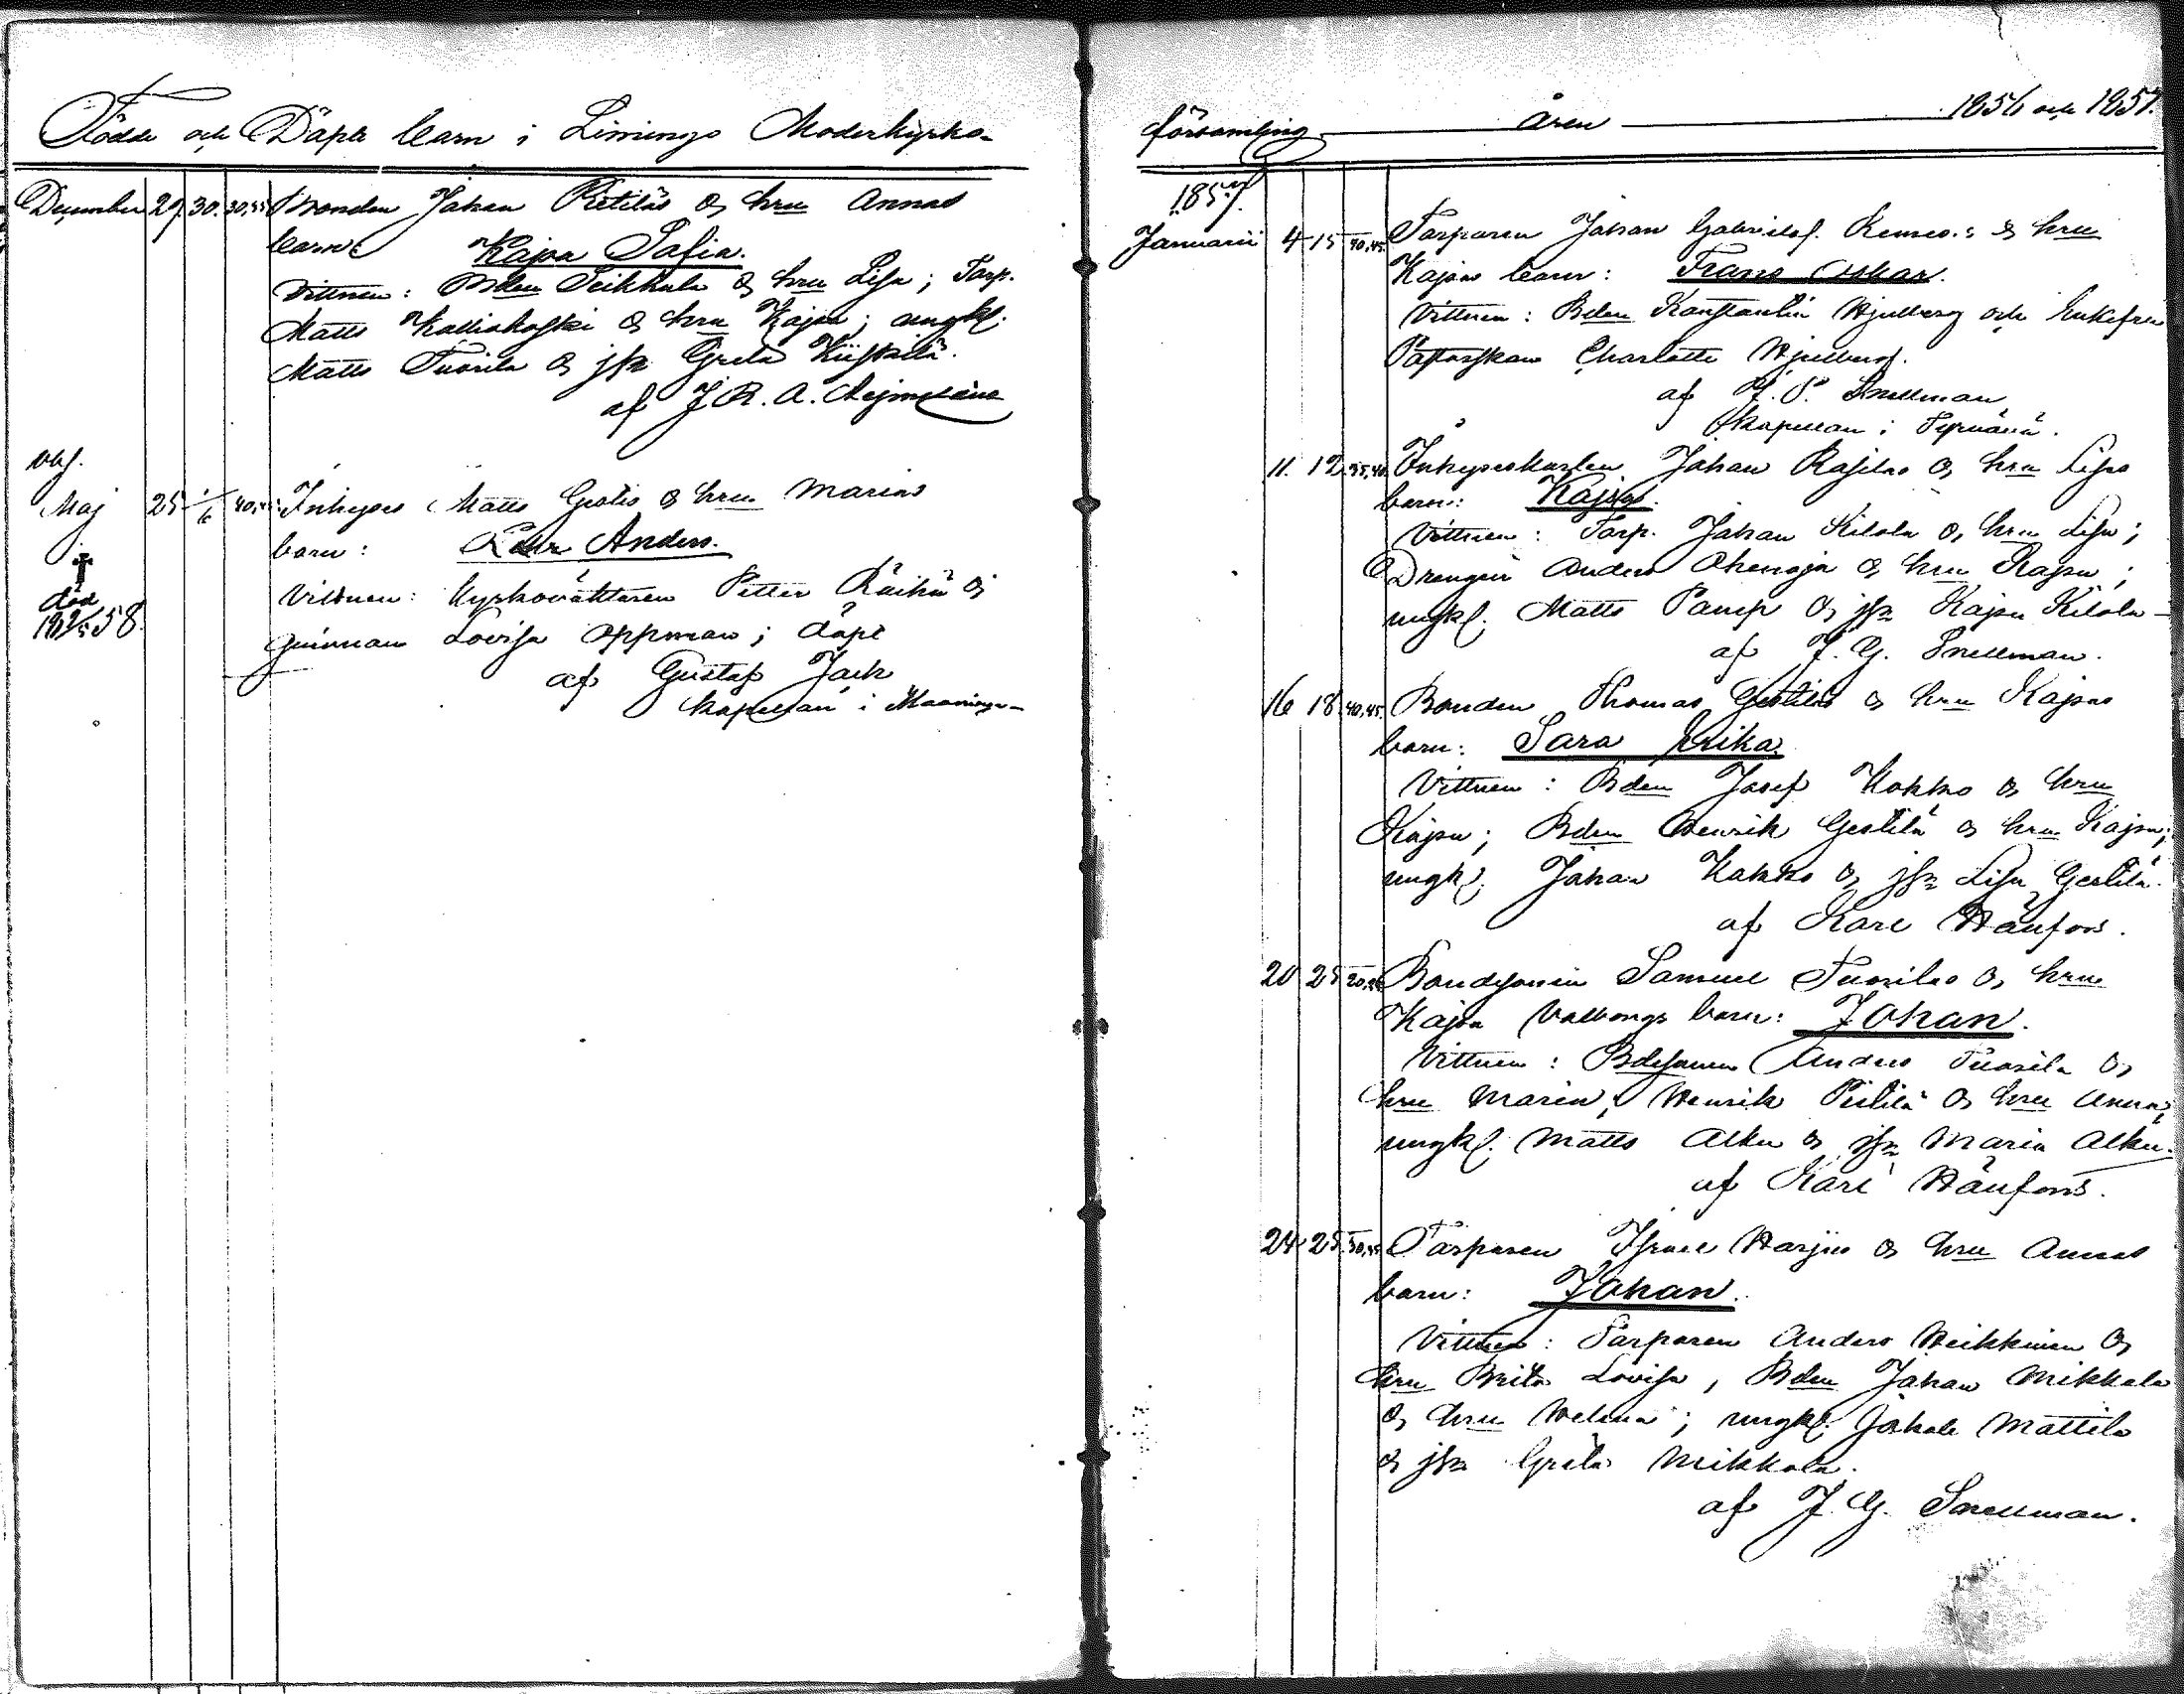 Födde och Döpte barn i Limingo Moderkyrko-
December 29. 30. 30,35 Bonden Johan Pietiläs & hru Annas
barn: Kajsa Sofia.
Vittnen: Bden Seikkala & hru Lisa; Torp.
Matts Kalliokoski & hru Kajsa; ungkl.
Matts Tuorila & jfr Greta Kiiskilä.
af J. R. A.
Maj 25 1/6 Inhyses Matts & hru Marias
barn: Anders.
Vittnen: Kyrkoväktaren Petter Räihä &
qvinnan Lovisa Oppman; döpt
af Gustaf
kapellan i
†
död
58.
församling Åren 1856 och 1857.
1857.
Januarii 4 15 40,45. Torparen Johan & hru
Kajsas barn: Frans Oskar.
Vittnen: Bden Konstantin och Enkefru
Charlotta
af Snellman
kapellan i Tyrnävä.
11. 12. 35,40. Inhyseskarlen Johan & hru Lisas
barn: Kajsa.
Vittnen: Torp. Johan Kilola & hru Lisa;
Drengen Anders & hru Kajsa;
ungkl. Matts & jfr Kajsa Kilola
af J. G. Snellman.
16 18 40,45. Bonden Thomas Gestiläs & hru Kajsas
barn: Sara Erika.
Vittnen: Bden Josef Kokko & hru
Kajsa; Bden Henrik Gestilä & hru Kajsa;
ungkl. Johan Kokko & jfr Lisa Gestilä.
af Karl
20 25 Bondesonen Samuel Tuorilas & hru
Kajsa Valborgs barn: Johan.
Vittnen: Bdesonen Anders Tuorila &
hru Maria, Henrik & hru Anna,
ungkl. Matts Alku & jfr Maria Alku.
af Karl
24 25 Torparen Israel Harjus & hru Annas
barn: Johan.
Vittnen: Torparen Anders Heikkinen &
hru Brita Lovisa, Bden Johan Mikkola
& hru Helena; ungkl. Mattila
& jfr Greta Mikkola.
af J. G. Snellman.